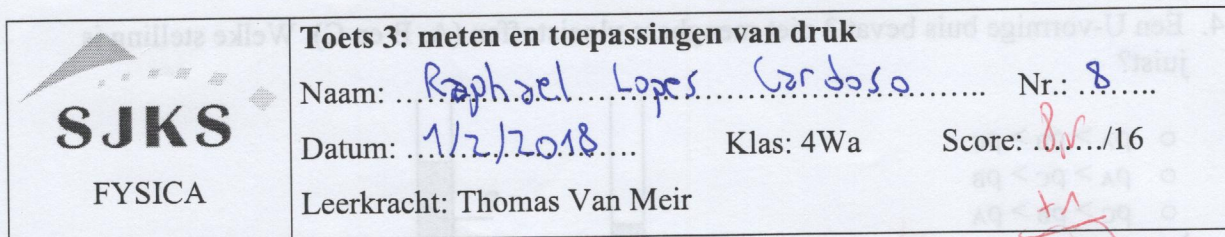 Toets 3: meten en toepassingen van druk
Naam: Raphael Lopes Cardoso Nr.: 8
SJKS
Datum: 1/2/2018 Klas: 4Wa Score: /16
FYSICA
Leerkracht: Thomas Van Meir
+1